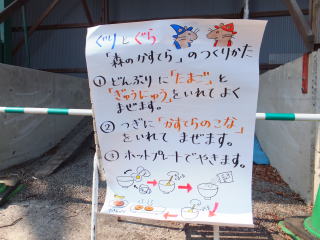 ぐりとぐら
「森のかすてら」のつくりかた
① どんぶりに「たまご」と
「ぎゅうにゅう」をいれてよく
まぜます。
② つぎに「かすてらのこな」
をいれて まぜます。
③ ホットプレートでやきます。